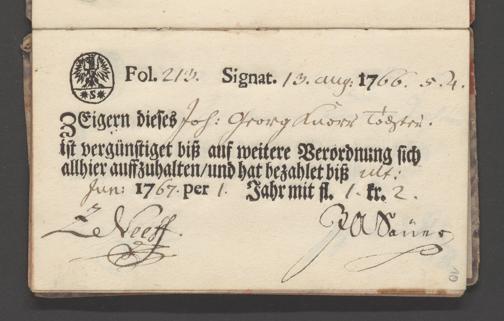 *S*
Fol. 213. Signat. 13. aug: 1766. 5.4.
Zeigern dieses Joh: Georg Knörr
ist vergünstiget biß auf weitere Verordnung sich
allhier auffzuhalten/und hat bezahlet biß ult:
Jun: 1767. per 1. Jahr mit fl. 1. kr. 2.
Z Neeff. JA Sauer
10